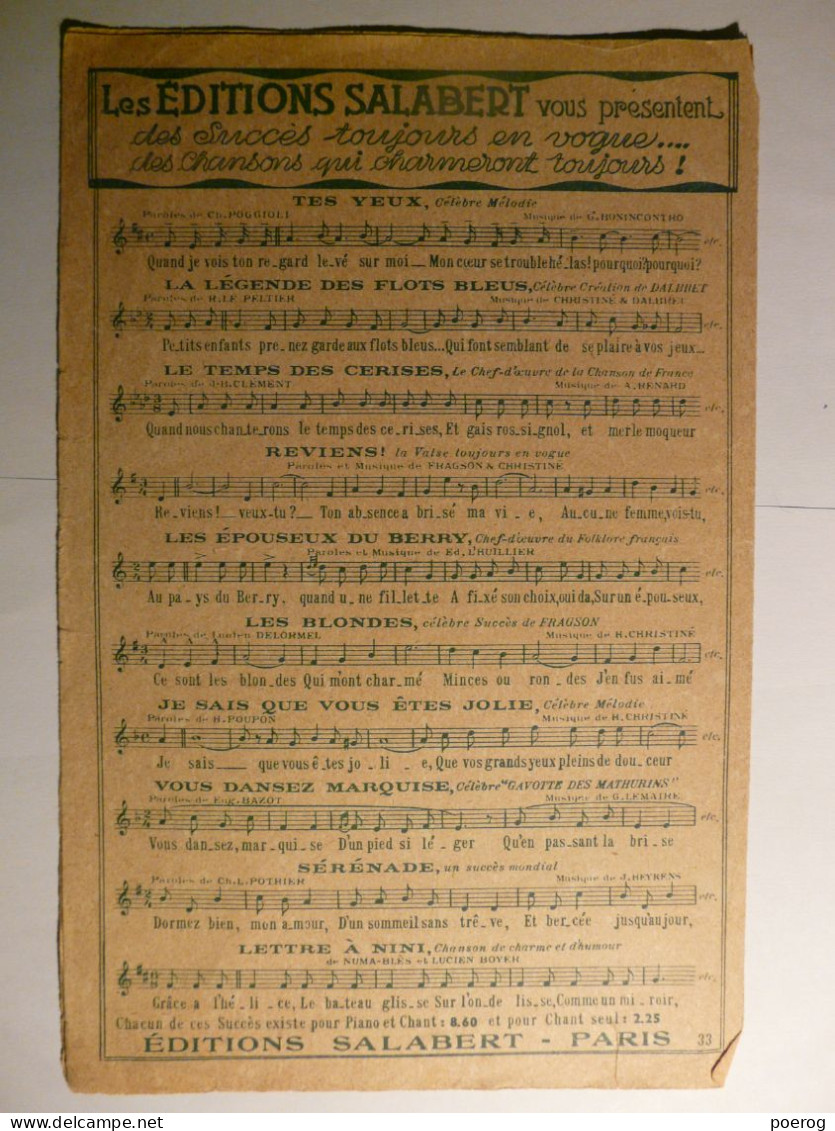 Les ÉDITIONS SALABERT vous présentent
des Succès toujours en vogue....
des Chansons qui charmeront toujours !
TES YEUX, Célèbre Mélodie
Paroles de Ch. POGGIOLI Musique de G. BONINCONTRO
etc.
Quand je vois ton re_gard le_vé sur moi_ Mon cœur se trouble hé_las! pourquoi? pourquoi?
LA LÉGENDE DES FLOTS BLEUS, Célèbre Création de DALBRET
Paroles de R. LE PELTIER Musique de CHRISTINÉ & DALBRET
etc.
Pe_tits enfants pre_nez garde aux flots bleus... Qui font semblant de se plaire à vos jeux_
LE TEMPS DES CERISES, Le Chef-d'œuvre de la Chanson de France
Paroles de J-B. CLÉMENT Musique de A. RENARD
etc.
Quand nous chan_te_rons le temps des ce_ri_ses, Et gais ros_si_gnol, et merle moqueur
REVIENS! la Valse toujours en vogue
Paroles et Musique de FRAGSON & CHRISTINÉ
etc.
Re_viens!__ veux-tu?__ Ton ab_sence a bri_sé ma vi_e, Au_cu_ne femme, vois-tu,
LES ÉPOUSEUX DU BERRY, Chef-d'œuvre du Folklore français
Paroles et Musique de Ed. L'HUILLIER
etc.
Au pa_ys du Ber_ry, quand u_ne fil_let_te A fi_xé son choix, oui da, Sur un é_pou_seux,
LES BLONDES, célèbre Succès de FRAGSON
Paroles de Lucien DELORMEL Musique de H. CHRISTINÉ
etc.
Ce sont les blon_des Qui m'ont char_mé Minces ou ron_des J'en fus ai_mé
JE SAIS QUE VOUS ÊTES JOLIE, Célèbre Mélodie
Paroles de H. POUPON Musique de H. CHRISTINÉ
etc.
Je sais___ que vous ê_tes jo_li_e, Que vos grands yeux pleins de dou_ceur
VOUS DANSEZ MARQUISE, Célèbre "GAVOTTE DES MATHURINS"
Paroles de Eug. BAZOT Musique de G. LEMAIRE
etc.
Vous dan_sez, mar_qui_se D'un pied si lé_ger Qu'en pas_sant la bri_se
SÉRÉNADE, un succès mondial
Paroles de Ch. L. POTHIER Musique de J. HEYRENS
etc.
Dormez bien, mon a_mour, D'un sommeil sans trê_ve, Et ber_cée jusqu'au jour,
LETTRE À NINI, Chanson de charme et d'humour
de NUMA-BLÈS et LUCIEN BOYER
etc.
Grâce a l'hé_li_ce, Le ba_teau glis_se Sur l'on_de lis_se, Comme un mi_roir,
Chacun de ces Succès existe pour Piano et Chant : 8.60 et pour Chant seul : 2.25
ÉDITIONS SALABERT - PARIS 33
poerog